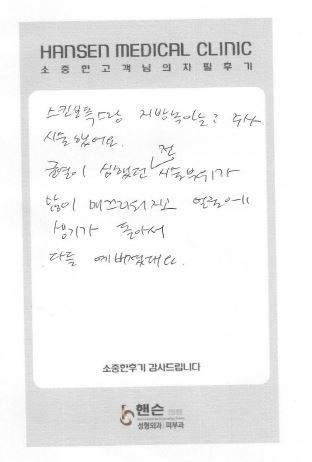 HANSEN MEDICAL CLINIC
소중한고객님의자필후기
스킨보톡스랑 지방녹이는 주사
시술했어요.
균열이 심했던 전 시술부위가
많이 매끄러워지고 얼굴에
생기가 돌아서
다들 예뻐졌대요.
소중한후기 감사드립니다
핸슨
성형외과 피부과